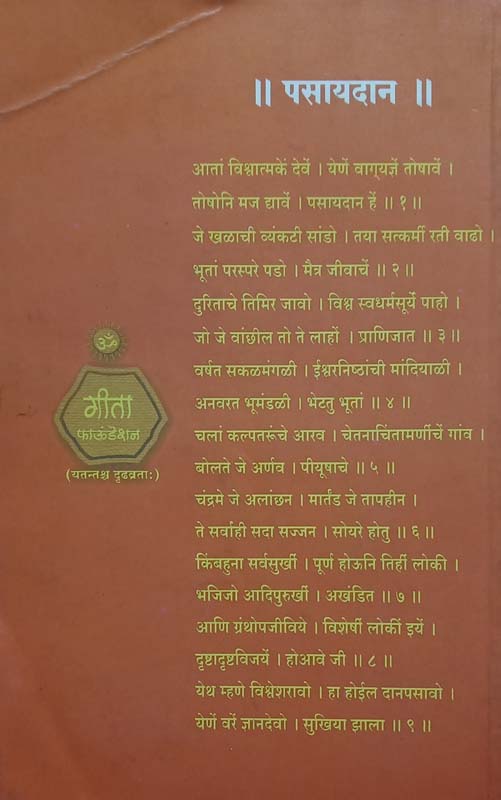 ॥ पसायदान ॥
आतां विश्वात्मकें देवें । येणें वाग्‌यज्ञें तोषावें ।
तोषोनि मज द्यावें । पसायदान हें ॥ १ ॥
जे खळाची व्यंकटी सांडो । तया सत्कर्मी रती वाढो ।
भूतां परस्परे पडो । मैत्र जीवाचें ॥ २ ॥
दुरिताचे तिमिर जावो । विश्व स्वधर्मसूर्ये पाहो ।
जो जे वांछील तो ते लाहों । प्राणिजात ॥ ३ ॥
वर्षत सकळमंगळी । ईश्वरनिष्ठांची मांदियाळी ।
अनवरत भूमंडळी । भेटतु भूतां ॥ ४ ॥
चलां कल्पतरूंचे आरव । चेतनाचिंतामणींचें गांव ।
बोलते जे अर्णव । पीयूषाचे ॥ ५ ॥
चंद्रमे जे अलांछन । मार्तंड जे तापहीन ।
ते सर्वाही सदा सज्जन । सोयरे होतु ॥ ६ ॥
किंबहुना सर्वसुखीं । पूर्ण होऊनि तिहीं लोकी ।
भजिजो आदिपुरुखीं । अखंडित ॥ ७ ॥
आणि ग्रंथोपजीविये । विशेषीं लोकीं इयें ।
दृष्टादृष्टविजयें । होआवे जी ॥ ८ ॥
येथ म्हणे विश्वेशरावो । हा होईल दानपसावो ।
येणें वरें ज्ञानदेवो । सुखिया झाला ॥ ९ ॥
ॐ
गीता
फाऊंडेशन
(यतन्तश्च दृढव्रताः)